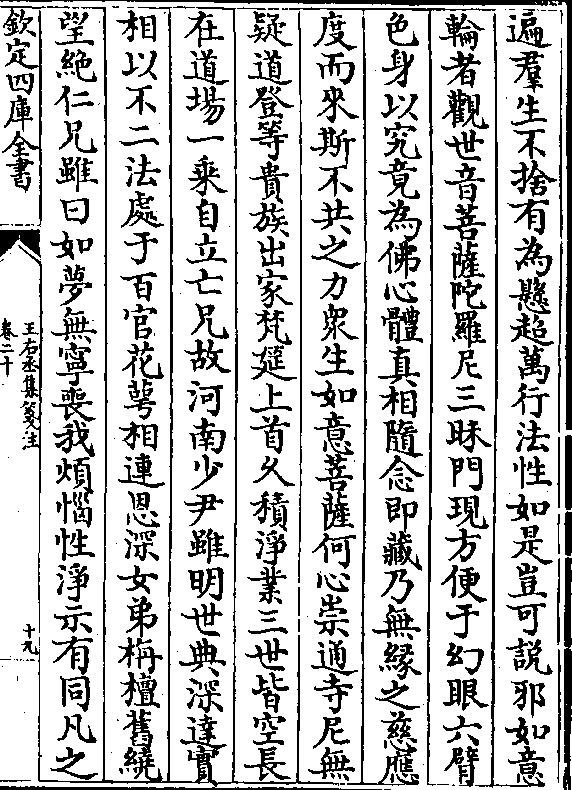 遍羣生不捨有為懸超萬行法性如是豈可說邪如意
輪者觀世音菩薩陀羅尼三昧門現方便于幻眼六臂
色身以究竟為佛心體真相隨念即藏乃無緣之慈應
度而來斯不共之力衆生如意菩薩何心崇通寺尼無
疑道登等貴族出家梵筵上首久積淨業三世皆空長
在道場一乘自立亡兄故河南少尹雖明世典深達實
相以不二法處于百官花萼相連恩深女弟栴檀舊繞
望絶仁兄雖曰如夢無寧喪我煩惱性淨示有同凡之
欽定四庫全書
王右丞集箋注
卷二十
十九